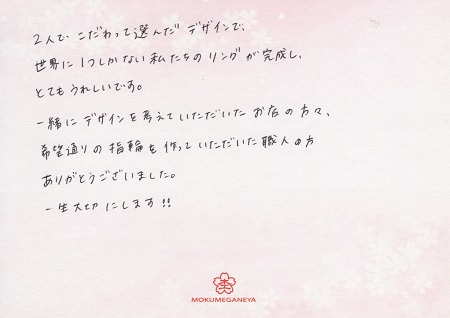 2人で、こだわって選んだデザインで、
世界に1つしかない私たちのリングが完成し、
とてもうれしいです。
一緒にデザインを考えていただいたお店の方々、
希望通りの指輪を作っていただいた職人の方
ありがとうございました。
一生大切にします!!
MOKUMEGANEYA